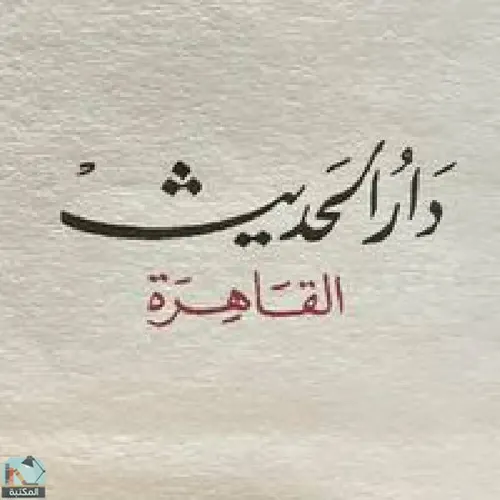 دَارُ الحَديثْ
القَاهِرَة
المكتبة